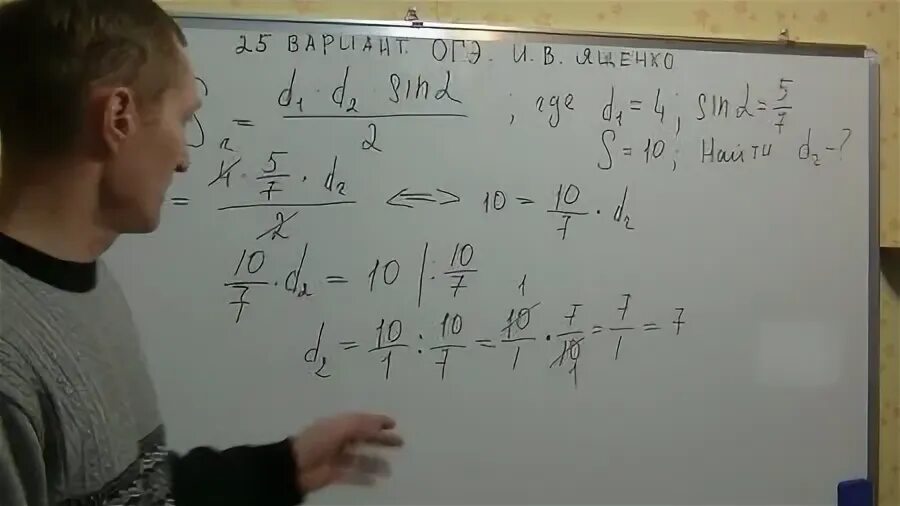 25 ВАРИАНТ ОГЭ. И. В. ЯЩЕНКО
S = (d₁ · d₂ · sin α)/2 ; где d₁ = 4 ; sin α = 5/7
S = 10 ; Найти d₂ - ?
= (4 · 5/7 · d₂)/2 <=> 10 = 10/7 · d₂
10/7 · d₂ = 10 | : 10/7
d₂ = 10/1 : 10/7 = 10/1 · 7/10 = 7/1 = 7